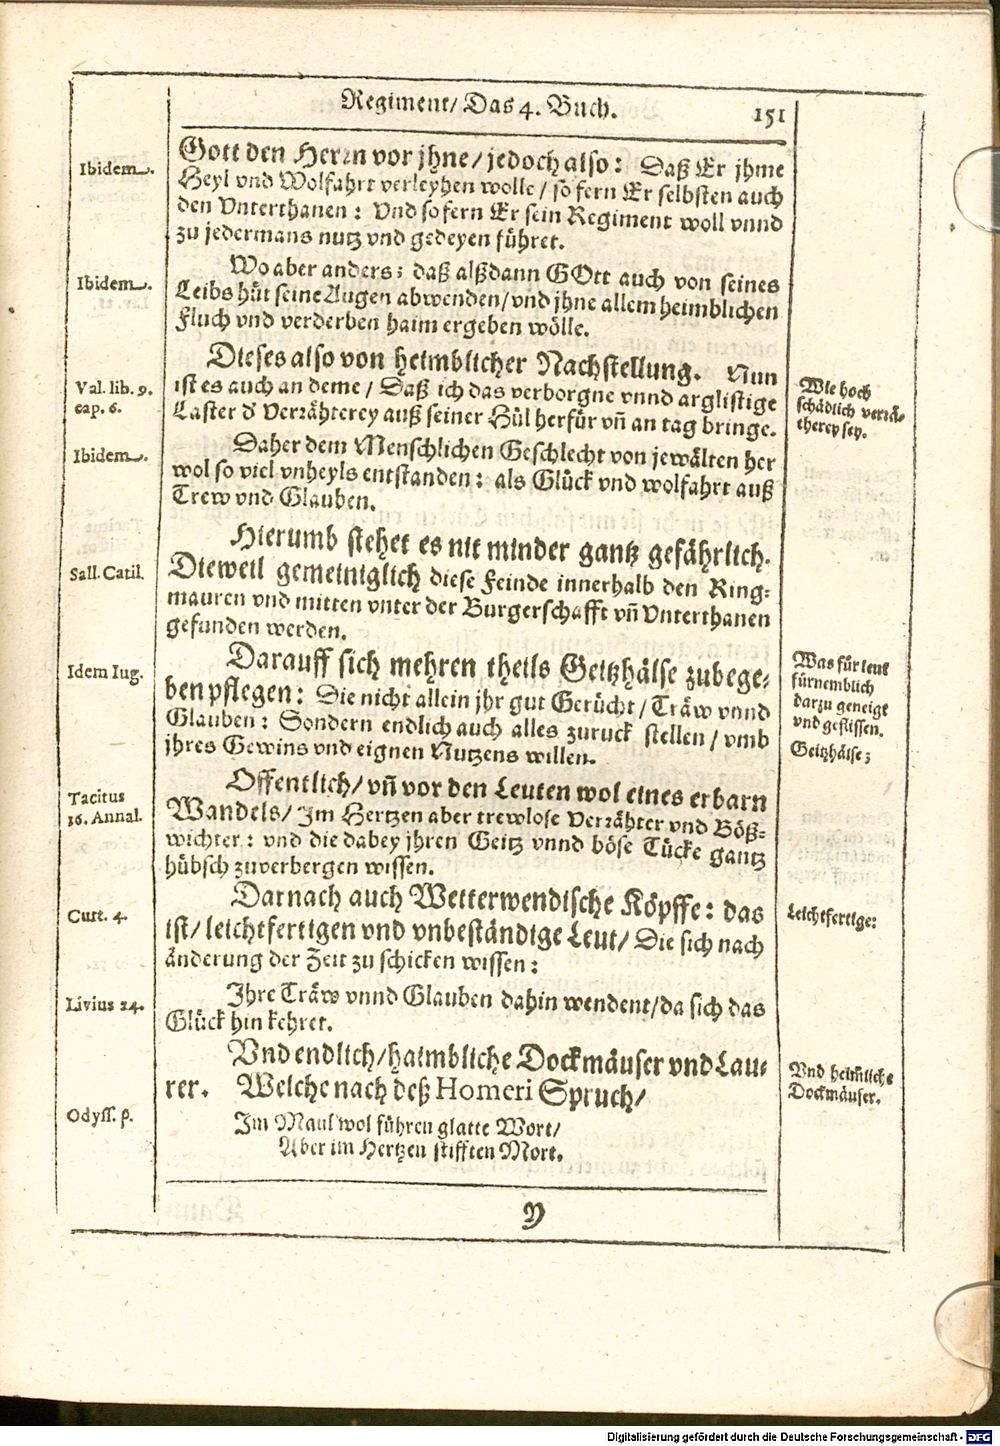 Regiment/ Das 4. Buch. 151
Ibidem.
Gott den Herrn vor jhne/ jedoch also: Daß Er jhme
Heyl vnd Wolfahrt verleyhen wolle/ so fern Er selbsten auch
den Vnterthanen: Vnd so fern Er sein Regiment woll vnnd
zu jedermans nutz vnd gedeyen führet.
Ibidem.
Wo aber anders; daß alßdann GOtt auch von seines
Leibs hüt seine Augen abwenden/ vnd jhne allem heimblichen
Fluch vnd verderben haim ergeben wölle.
Dieses also von heimblicher Nachstellung. Nun
Val. lib. 9.
cap. 6.
ist es auch an deme/ Daß ich das verborgne vnnd arglistige
Laster d' Verrähterey auß seiner Hül herfür vñ an tag bringe.
Wie hoch
schädlich verrä-
therey sey.
Ibidem.
Daher dem Menschlichen Geschlecht von jewälten her
wol so viel vnheyls entstanden: als Glück vnd wolfahrt auß
Trew vnd Glauben.
Hierumb stehet es nit minder gantz gefährlich.
Sall. Catil.
Dieweil gemeiniglich diese Feinde innerhalb den Ring-
mauren vnd mitten vnter der Burgerschafft vñ Vnterthanen
gefunden werden.
Idem Iug.
Darauff sich mehren theils Geitzhälse zubege-
ben pflegen: Die nicht allein jhr gut Gerücht/ Träw vnnd
Glauben: Sondern endlich auch alles zuruck stellen/ vmb
jhres Gewins vnd eignen Nutzens willen.
Was für leut
fürnemblich
darzu geneigt
vnd geflissen.
Geitzhälse;
Tacitus
16. Annal.
Offentlich/ vñ vor den Leuten wol eines erbarn
Wandels/ Im Hertzen aber trewlose Verrähter vnd Böß-
wichter: vnd die dabey jhren Geitz vnnd böse Tücke gantz
hübsch zuverbergen wissen.
Curt. 4.
Darnach auch Wetterwendische Köpffe: das
ist/ leichtfertigen vnd vnbeständige Leut/ Die sich nach
änderung der Zeit zu schicken wissen:
Leichtfertige:
Livius 24.
Ihre Träw vnnd Glauben dahin wendent/ da sich das
Glück hin kehret.
Vnd endlich/ haimbliche Dockmäuser vnd Lau-
rer. Welche nach deß Homeri Spruch/
Vnd heimliche
Dockmäuser.
Odyss. β.
Im Maul wol führen glatte Wort/
Aber im Hertzen stifften Mort.
Y
Digitalisierung gefördert durch die Deutsche Forschungsgemeinschaft - DFG